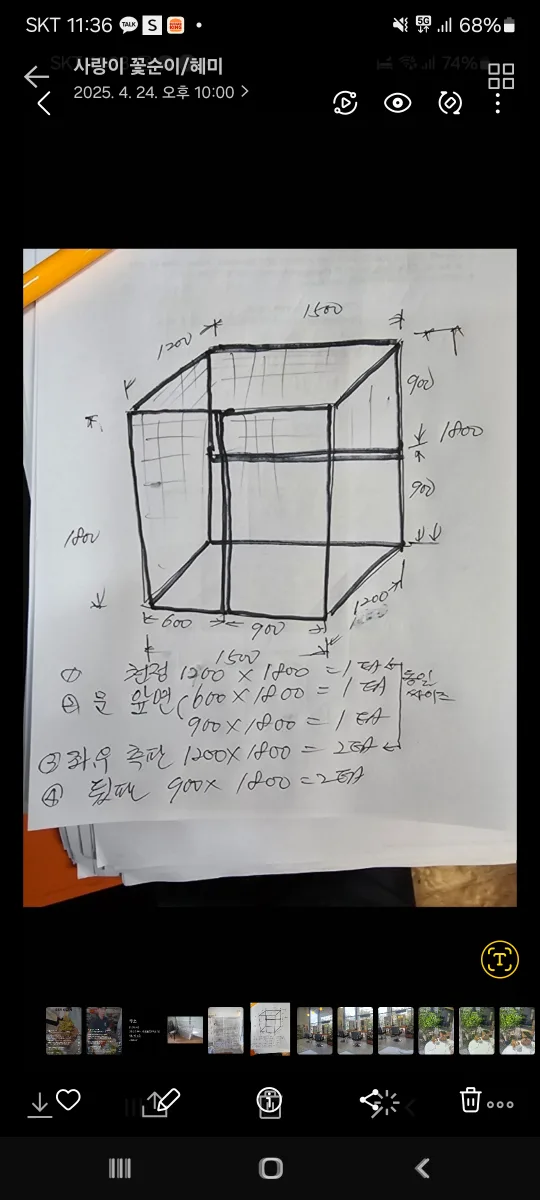 SKT 11:36 TALK S 5G 68%
74%
사랑이 꽃순이/혜미
2025. 4. 24. 오후 10:00
1200
1500
900
1800
900
1800
1200
600
900
1500
① 천정 1200 × 1800 = 1 EA
② 문 앞면 (600 × 1800 = 1 EA
900 × 1800 = 1 EA
동일
싸이즈
③ 좌우 측판 1200 × 1800 = 2EA
④ 뒷판 900 × 1800 = 2EA
T